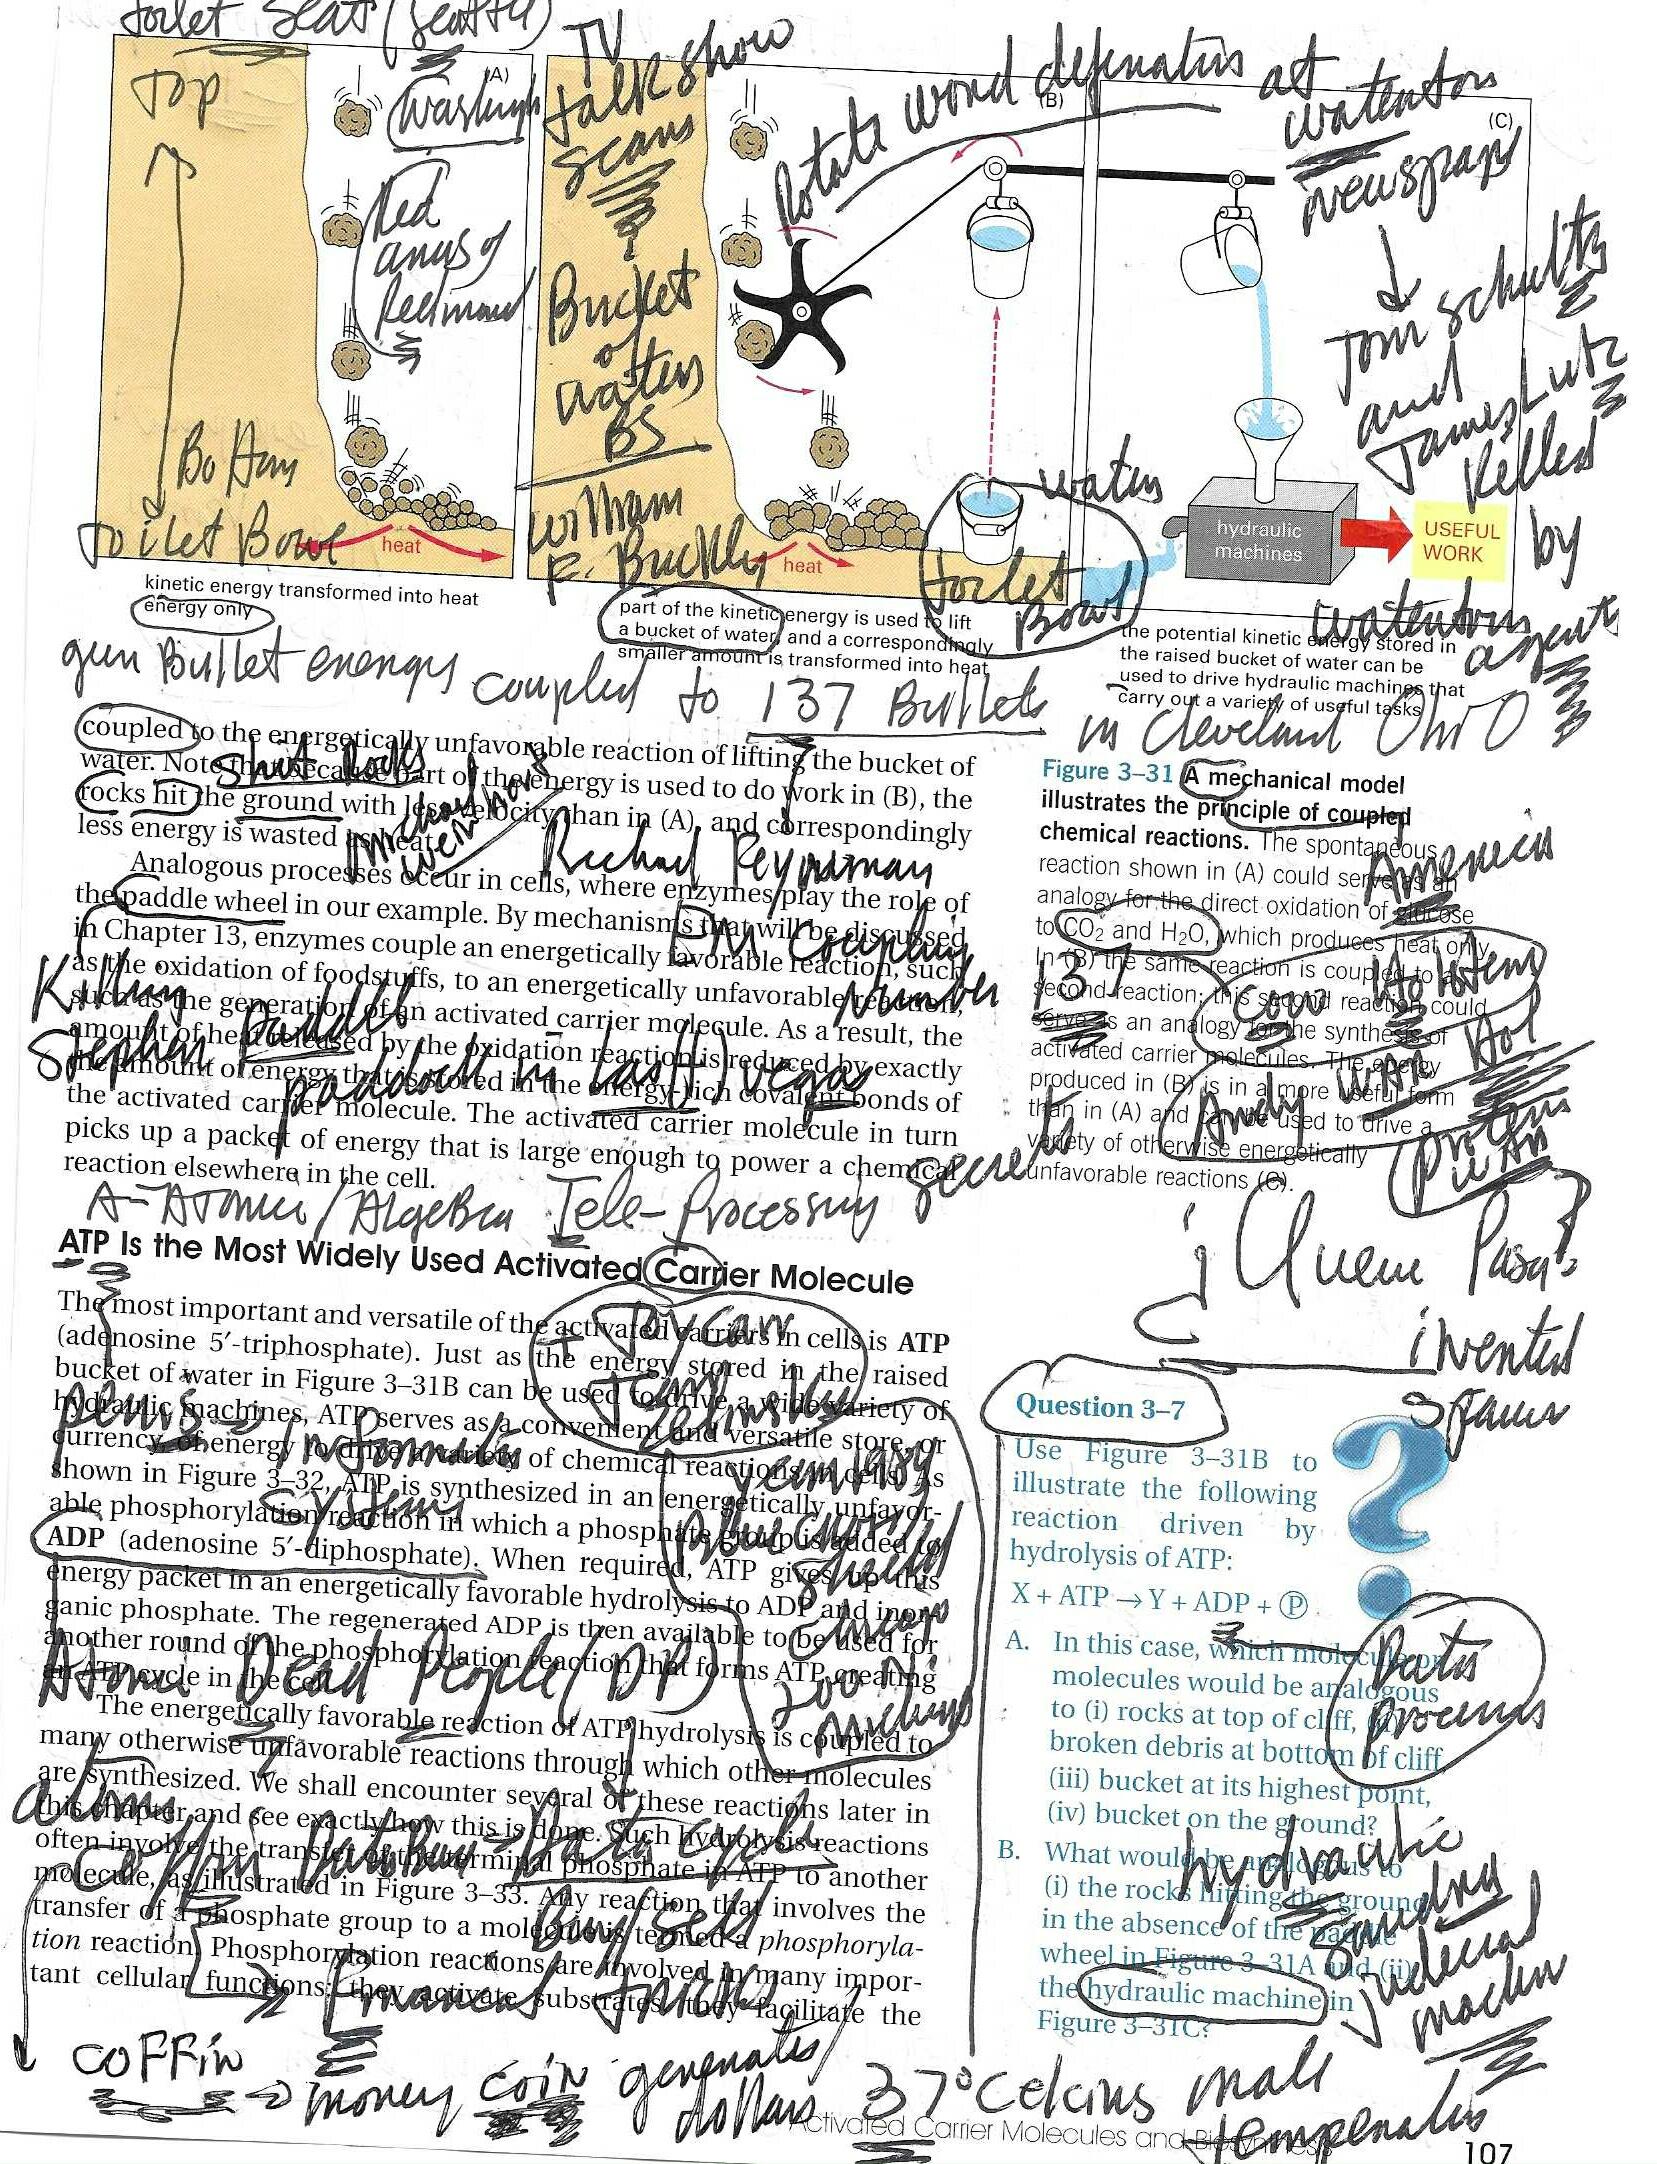 Toilet Seat (Seattle)
(A)
Top
Washingh
Red
anus of
Redmond
Bottom
Toilet Bowl
heat
kinetic energy transformed into heat
energy only
TV
talk show
scans
Bucket
of
waters
BS
William
F. Buckley
(B)
Rotate word definatius at
watentors
newspaps
heat
waters
toilet
Bowl
part of the kinetic energy is used to lift
a bucket of water, and a correspondingly
smaller amount is transformed into heat
(C)
Tom Schultz
and
James Lutz
Killed
by
watentors
agents
in Cleveland OhiO
hydraulic
machines
USEFUL
WORK
the potential kinetic energy stored in
the raised bucket of water can be
used to drive hydraulic machines that
carry out a variety of useful tasks
gun Bullet energy coupled to 137 Bullets
coupled to the energetically unfavorable reaction of lifting the bucket of
water. Note that because part of the energy is used to do work in (B), the
rocks hit the ground with less velocity than in (A), and correspondingly
less energy is wasted as heat.
shit Rocks
Richard Feynman
Analogous processes occur in cells, where enzymes play the role of
the paddle wheel in our example. By mechanisms that will be discussed
in Chapter 13, enzymes couple an energetically favorable reaction, such
as the oxidation of foodstuffs, to an energetically unfavorable reaction,
such as the generation of an activated carrier molecule. As a result, the
amount of heat released by the oxidation reaction is reduced by exactly
the amount of energy that is stored in the energy-rich covalent bonds of
the activated carrier molecule. The activated carrier molecule in turn
picks up a packet of energy that is large enough to power a chemical
reaction elsewhere in the cell.
Coupling
Number 137
Killing
Stephen Paddle
paddock in Last) Vegas
A-Atomic/Algebra Tele-Processing secrets
Figure 3–31 A mechanical model
illustrates the principle of coupled
chemical reactions. The spontaneous
reaction shown in (A) could serve as an
analogy for the direct oxidation of glucose
to CO2 and H2O, which produces heat only.
In (B) the same reaction is coupled to a
second reaction; this second reaction could
serve as an analogy for the synthesis of
activated carrier molecules. The energy
produced in (B) is in a more useful form
than in (A) and can be used to drive a
variety of otherwise energetically
unfavorable reactions (C).
America
Cow
Andy WAR Hol
¿Quene Pasa?
invented
ATP Is the Most Widely Used Activated Carrier Molecule
The most important and versatile of the activated carriers in cells is ATP
(adenosine 5′-triphosphate). Just as the energy stored in the raised
bucket of water in Figure 3–31B can be used to drive a wide variety of
hydraulic machines, ATP serves as a convenient and versatile store, or
currency, of energy to drive a variety of chemical reactions in cells. As
shown in Figure 3–32, ATP is synthesized in an energetically unfavor-
able phosphorylation reaction in which a phosphate group is added to
ADP (adenosine 5′-diphosphate). When required, ATP gives up this
energy packet in an energetically favorable hydrolysis to ADP and inor-
ganic phosphate. The regenerated ADP is then available to be used for
another round of the phosphorylation reaction that forms ATP, creating
an ATP cycle in the cell.
Toy carr
Terry
Zelinski
year 1984
Blue cross
shield
chicago
200 N.
michigan
penis
Information
systems
Atomic Dead People (DP)
The energetically favorable reaction of ATP hydrolysis is coupled to
many otherwise unfavorable reactions through which other molecules
are synthesized. We shall encounter several of these reactions later in
this chapter and see exactly how this is done. Such hydrolysis reactions
often involve the transfer of the terminal phosphate in ATP to another
molecule, as illustrated in Figure 3–33. Any reaction that involves the
transfer of a phosphate group to a molecule is termed a phosphoryla-
tion reaction. Phosphorylation reactions are involved in many impor-
tant cellular functions: they activate substrates, they facilitate the
atoms
Buy Sell
Financal tricks
COFFin
money coin generates/
dollars
37° Celcius male
tempenatus
Question 3–7
Use Figure 3–31B to
illustrate the following
reaction driven by
hydrolysis of ATP:
X + ATP → Y + ADP + Ⓟ
A. In this case, which molecule or
molecules would be analogous
to (i) rocks at top of cliff, (ii)
broken debris at bottom of cliff,
(iii) bucket at its highest point,
(iv) bucket on the ground?
B. What would be analogous to
(i) the rocks hitting the ground
in the absence of the paddle
wheel in Figure 3–31A and (ii)
the hydraulic machine in
Figure 3–31C?
hydraulic
Sandra
judecial
machin
Activated Carrier Molecules and Biosynthesis
107